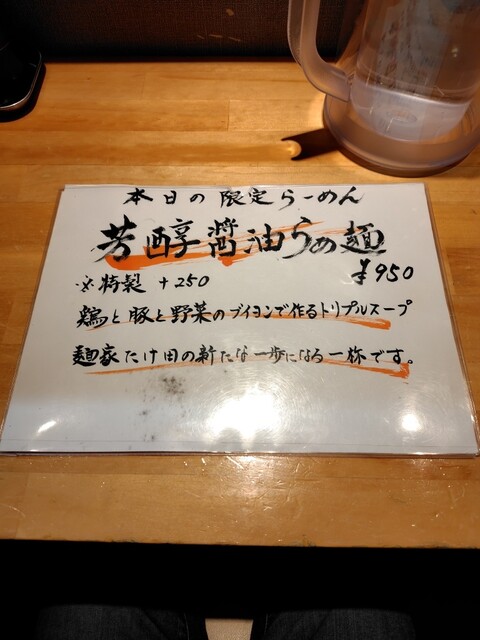 本日の限定らーめん
芳醇醤油らぁ麺
¥950
※特製 +250
鶏と豚と野菜のブイヨンで作るトリプルスープ
麺家たけ田の新たな一歩になる一杯です。